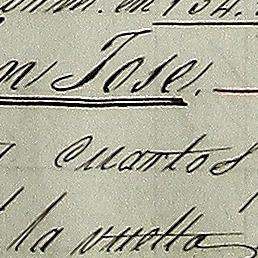 en 134.
n Jose.
cuartos
la vuelta